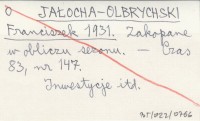 O JAŁOCHA-OLBRYCHSKI
Franciszek 1931. Zakopane
w obliczu sezonu. — Czas
83, nr 147.
Inwestycje itd.